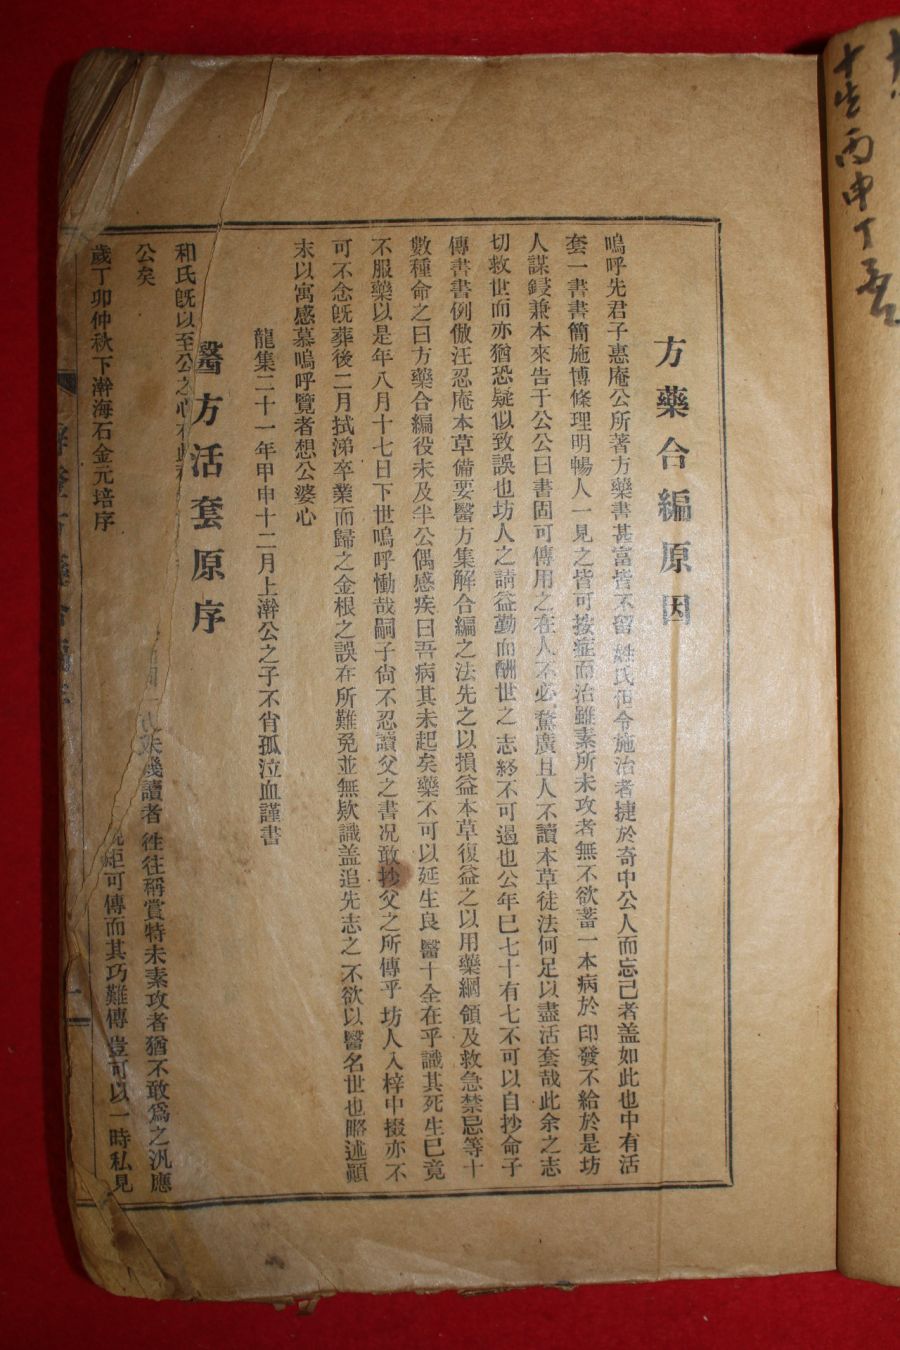 方藥合編原因
嗚呼先君子惠庵公所著方藥書甚富皆不留姓氏但令施治者捷於奇中公人而忘己者盖如此也中有活
套一書書簡施博條理明暢人一見之皆可按症而治雖素所未攻者無不欲蓄一本病於印發不給於是坊
人謀鋟兼本來告于公公曰書固可傳用之在人不必驚廣且人不讀本草徒法何足以盡活套哉此余之志
切救世而亦猶恐疑似致誤也坊人之請益勤而酬世之志終不可遏也公年巳七十有七不可以自抄命子
傳書書例倣汪忍庵本草備要醫方集解合編之法先之以損益本草復益之以用藥綱領及救急禁忌等十
數種命之曰方藥合編役未及半公偶感疾曰吾病其未起矣藥不可以延生良醫十全在乎識其死生巳竟
不服藥以是年八月十七日下世嗚呼慟哉嗣子尙不忍讀父之書况敢抄父之所傳乎坊人入梓中掇亦不
可不念旣葬後二月拭涕卒業而歸之金根之誤在所難免並無欵識盖追先志之不欲以醫名世也略述顚
末以寓感慕嗚呼覽者想公婆心
龍集二十一年甲申十二月上澣公之子不肖孤泣血謹書
醫方活套原序
和氏旣以至公之心
讀者徃往稱賞特未素攻者猶不敢爲之汎應
公矣
可傳而其巧難傳豈可以一時私見
歲丁卯仲秋下澣海石金元培序
十生丙申丁